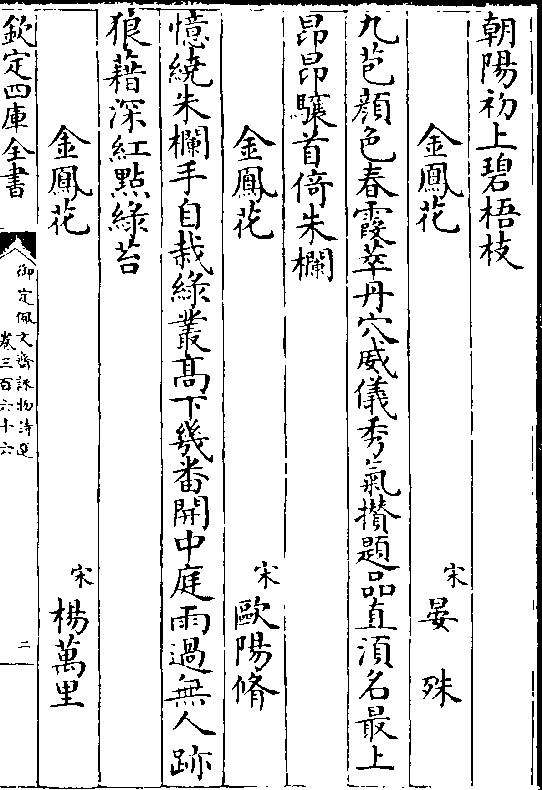 朝陽初上碧梧枝
金鳳花　宋　晏殊
九苞顏色春霞萃丹穴威儀秀氣攢題品直須名最上
昂昂驤首倚朱欄
金鳳花　宋　歐陽脩
憶繞朱欄手自栽綠叢髙下幾番開中庭雨過無人跡
狼藉深紅點綠苔
金鳳花　宋　楊萬里
欽定四庫全書
御定佩文齋詠物詩選
卷三百六十六
二